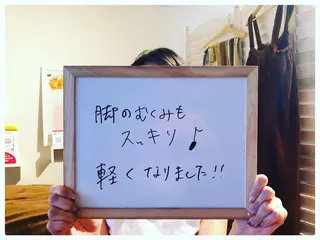 脚のむくみも
スッキリ♪
軽くなりました!!